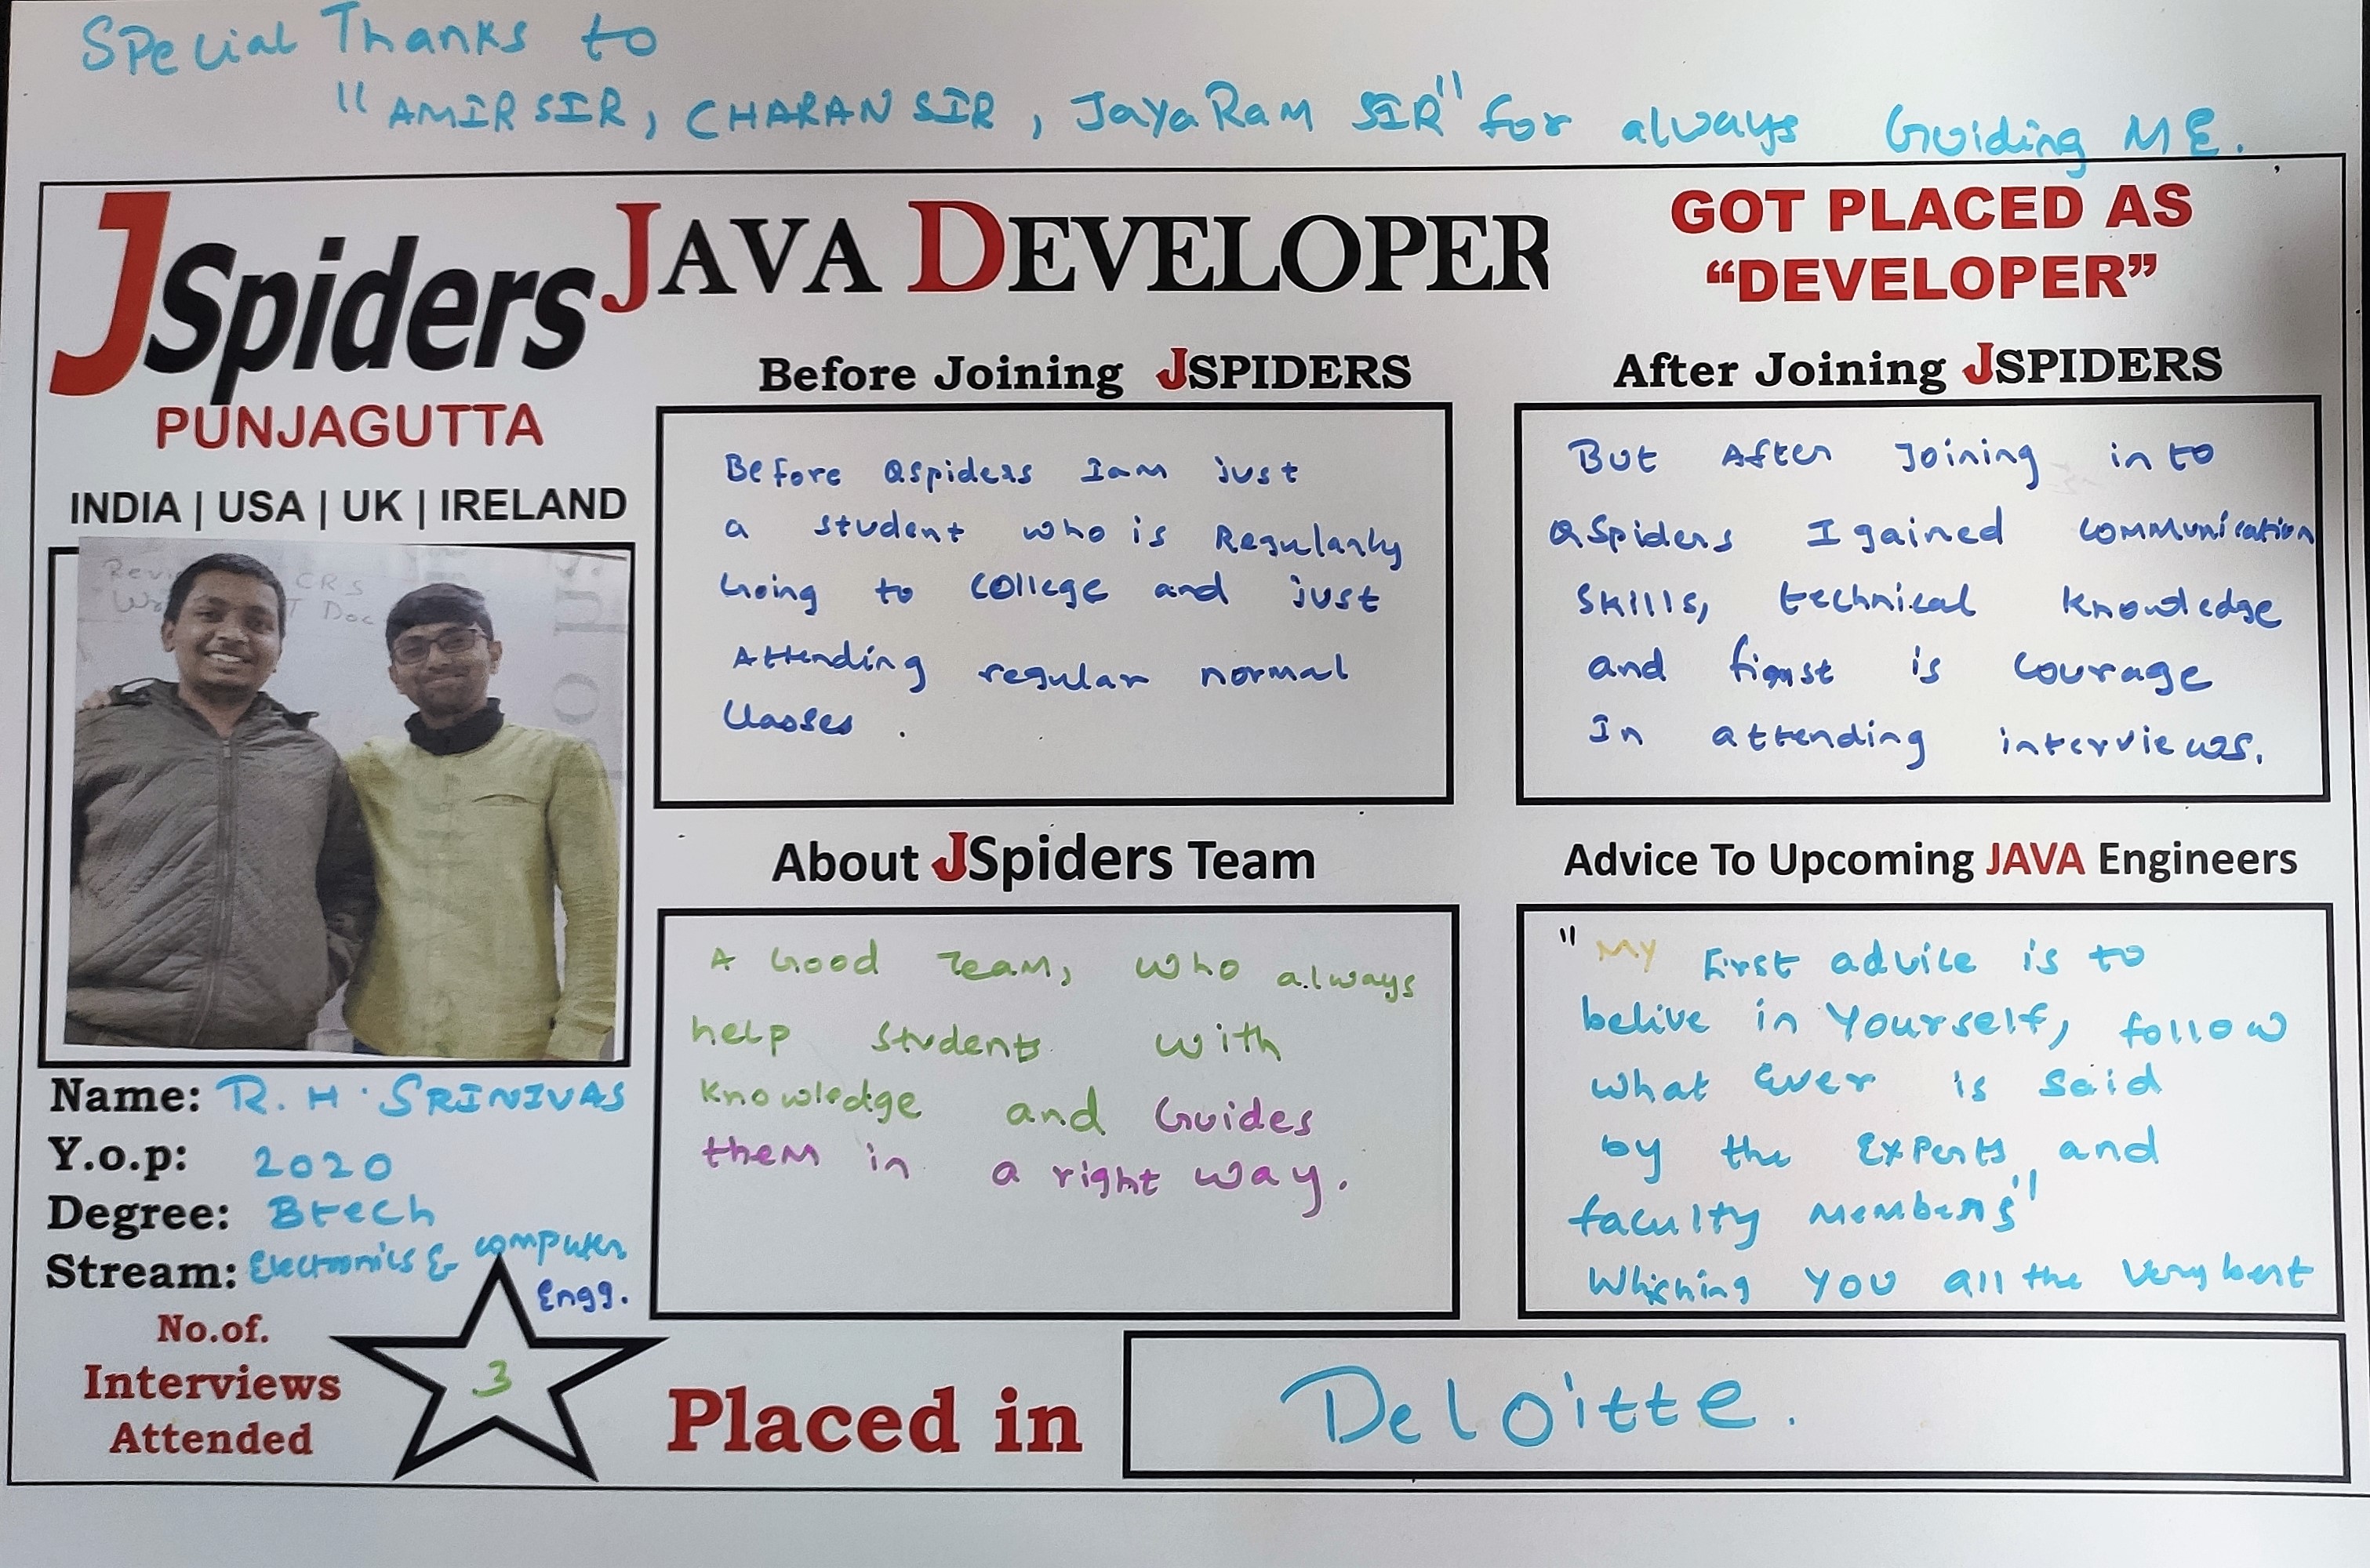 Special Thanks to
"AMIR SIR, CHARAN SIR, JayaRam SIR" for always Guiding ME.
JSpiders
PUNJAGUTTA
INDIA | USA | UK | IRELAND
JAVA DEVELOPER
GOT PLACED AS
“DEVELOPER”
Before Joining JSPIDERS
Before Qspiders I am just
a student who is Regularly
Going to college and just
Attending regular normal
classes.
After Joining JSPIDERS
But After Joining into
QSpiders I gained communication
skills, technical knowledge
and is courage
In attending interviews.
Revi CRS
Wr T Doc
Name: R.H. SRINIVAS
Y.o.p: 2020
Degree: Btech
Stream: Electronics & computer
Engg.
No.of.
Interviews
Attended
3
About JSpiders Team
A Good Team, who always
help students with
knowledge and Guides
them in a right way.
Advice To Upcoming JAVA Engineers
"My First advice is to
belive in Yourself, follow
what Ever is said
by the Experts and
faculty Members"
Whishing you all the very best
Placed in
Deloitte.